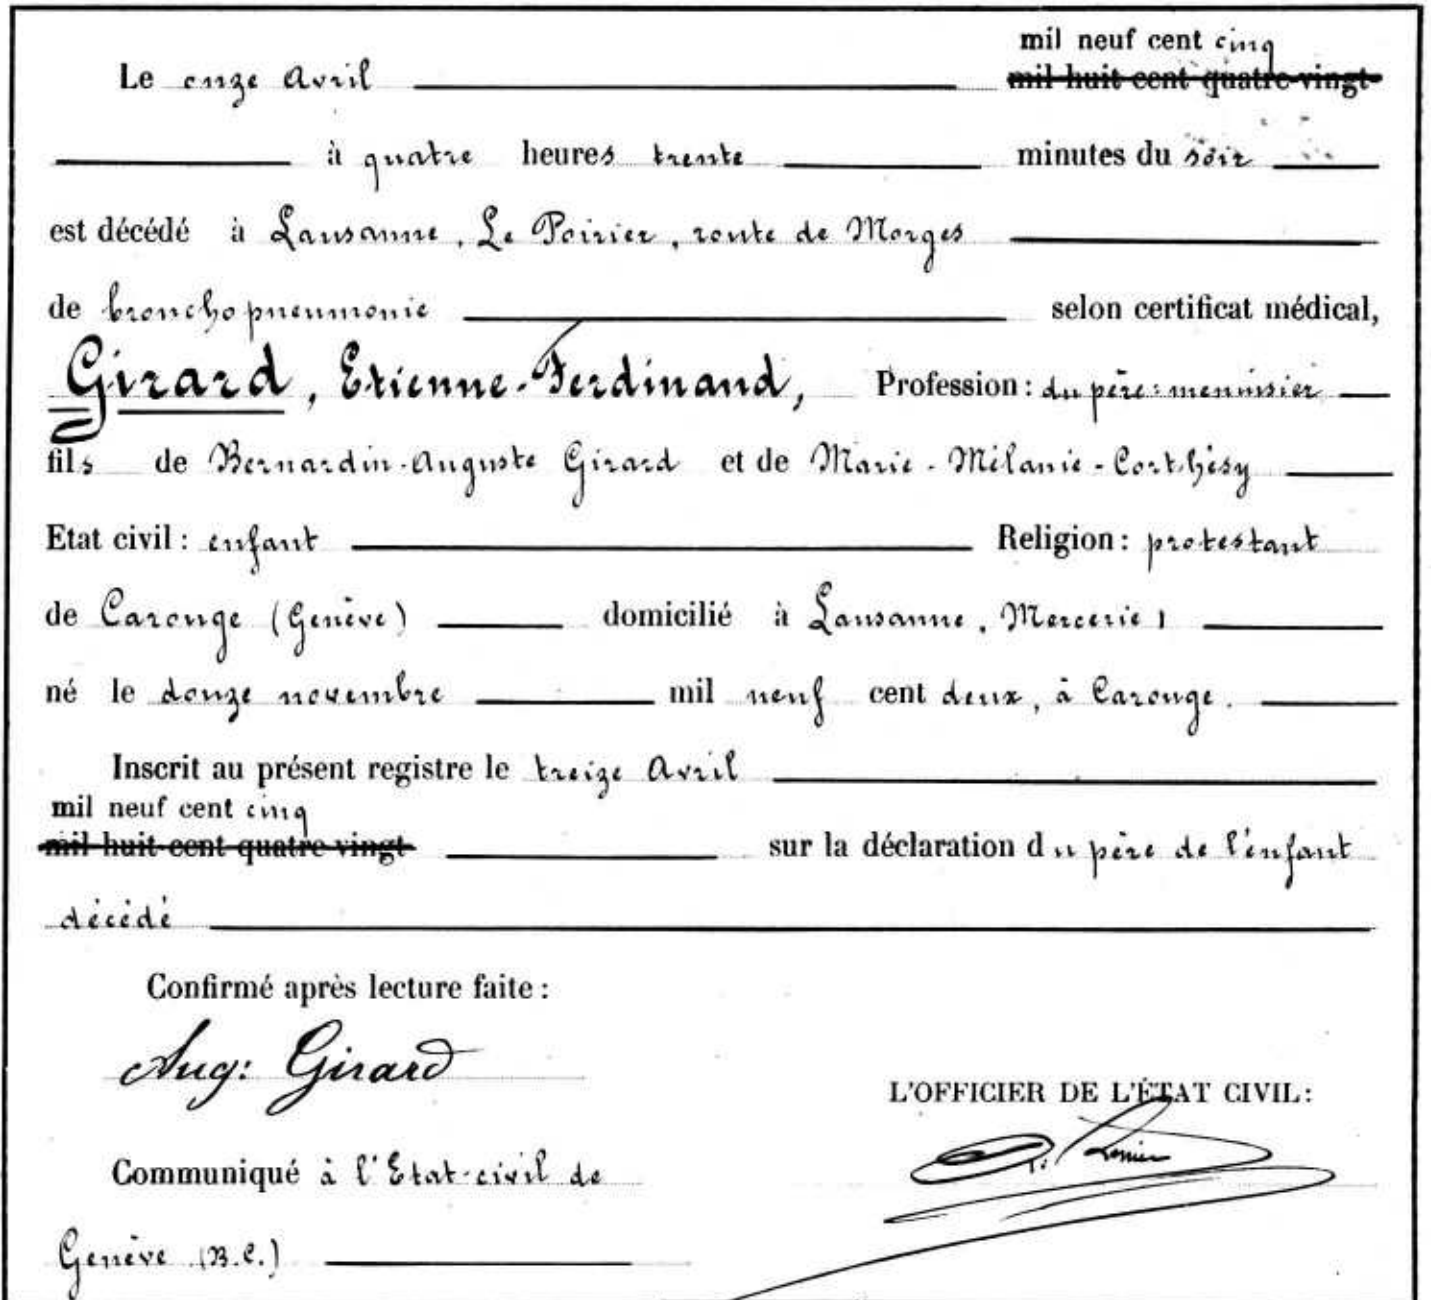 mil neuf cent cinq
Le onze Avril mil huit cent quatre-vingt-
à quatre heures trente minutes du soir
est décédé à Lausanne, Le Poirier, route de Morges
de broncho pneumonie selon certificat médical,
Girard, Etienne-Ferdinand, Profession : du père: menuisier
fils de Bernardin-Auguste Girard et de Marie-Mélanie-Corthésy
Etat civil : enfant Religion : protestant
de Carouge (Genève) domicilié à Lausanne, Mercerie 1
né le douze novembre mil neuf cent deux, à Carouge.
Inscrit au présent registre le treize Avril
mil neuf cent cinq
mil huit cent quatre-vingt- sur la déclaration du père de l'enfant
décédé
Confirmé après lecture faite :
Aug: Girard
L'OFFICIER DE L'ÉTAT CIVIL :
Communiqué à l'Etat-civil de
Genève (B.C.)